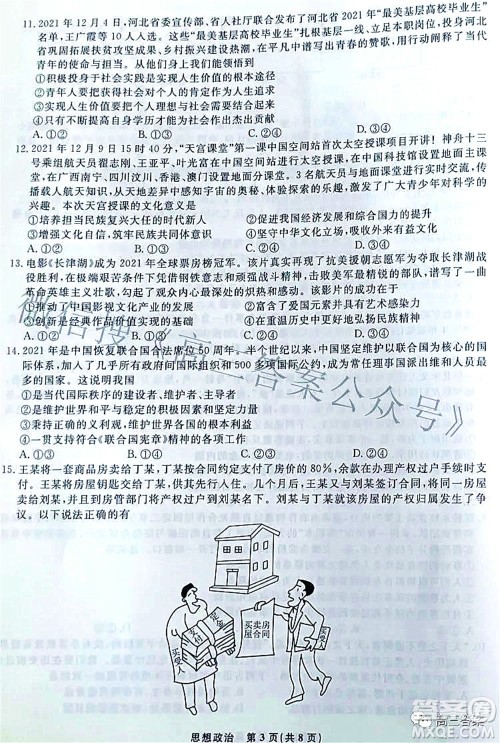 11. 2021 年 12 月 4 日,河北省委宣传部、省人社厅联合发布了河北省 2021 年“最美基层高校毕业生”
名单,王广霞等 10 人入选。这些“最美基层高校毕业生”扎根基层一线、立足本职岗位,投身河北
省巩固拓展扶贫攻坚成果、乡村振兴建设,在平凡中谱写出青春的赞歌,用自己的执着与奉献
诠释着责任与担当。从他们身上我们能够领悟到
①积极投身于社会实践是实现人生价值的根本途径
②青年人要把个人发展同社会和人民的需要结合起来
③实现人生价值要把个人理想与社会需要和国家发展相结合
④只有不断提高自身学历才能为社会作出贡献
A. ①② B. ①④ C. ②③ D. ③④
12. 2021 年 12 月 9 日 15 时 40 分,“天宫课堂”第一课中国空间站首次太空授课项目开讲!神舟十三
号乘组航天员翟志刚、王亚平、叶光富在中国空间站进行太空授课,在中国科技馆设置地面主课
堂,在广西南宁、四川汶川、香港、澳门设置地面分课堂。3 名航天员与广大青少年进行互动交
流,传播载人航天知识与文化,体验载人航天乐趣、感悟探索奥秘,激发了广大青少年对科学的
兴趣。本次天宫授课的文化意义是
①担当起民族复兴大任的使命 ②促进经济建设发展和综合国力的提升
③增强文化自信,筑牢民族复兴的精神支撑 ④坚守中华文化立场,传承中华文化
A. ①② B. ①③ C. ②④ D. ③④
13. 电影《长津湖》成为 2021 年全球票房榜冠军。该影片真实再现了抗美援朝志愿军为夺取长津湖战
役胜利,在极端艰苦条件下凭借钢铁意志和顽强战斗精神,最终击败美军精锐的历史,奏响了一曲
革命英雄主义壮歌,引起了观众对内心最深处的炽热和感动。该影片的成功在于
①推动了中国影视文化产业的发展 ②富有强烈的感染力和深厚的人文情怀
③创新是经典作品价值引领的动力 ④丰富了人们的文化生活
A. ①② B. ①③ C. ②④ D. ③④
14. 2021 年是中国恢复联合国合法席位 50 周年。半个世纪以来,中国坚定维护以联合国为核心的国
际体系,加入了几乎所有政府间国际组织和 500 多项国际公约,成为常任理事国派出维和人员最
多的国家。这说明我国
①是当代国际秩序的建设者、维护者、主导者
②是维护世界和平与稳定的积极因素和坚定力量
③积极履行维护世界和平与安全的国际权利
④一贯支持符合《联合国宪章》精神的各项工作
A. ①② B. ①③ C. ②④ D. ③④
15. 王某将一套商品房卖给丁某,丁某按合同约定支付了房价的 80%,余款在办理产权过户手续时支
付。王某将房屋钥匙交给丁某,丁某即对房屋进行装修。1 个月后,王某又以更高的价格将房屋
卖给刘某,并到房管部门将产权过户到刘某名下。刘某与丁某就该房屋的产权归属发生了争
议。以下说法正确的有
买受人
支付
价金
买卖房
屋合同
思想政治 第 3 页(共 8 页)
微信搜《高三答案公众号》
高三答案
答案圈
MXQE.COM